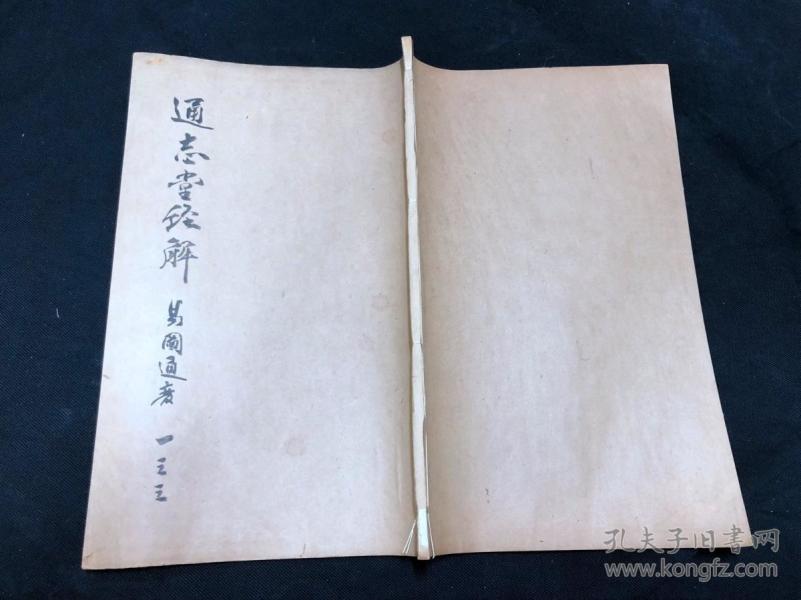 通志堂經解
易圖通變
一三三
孔夫子旧書网
www.kongfz.com